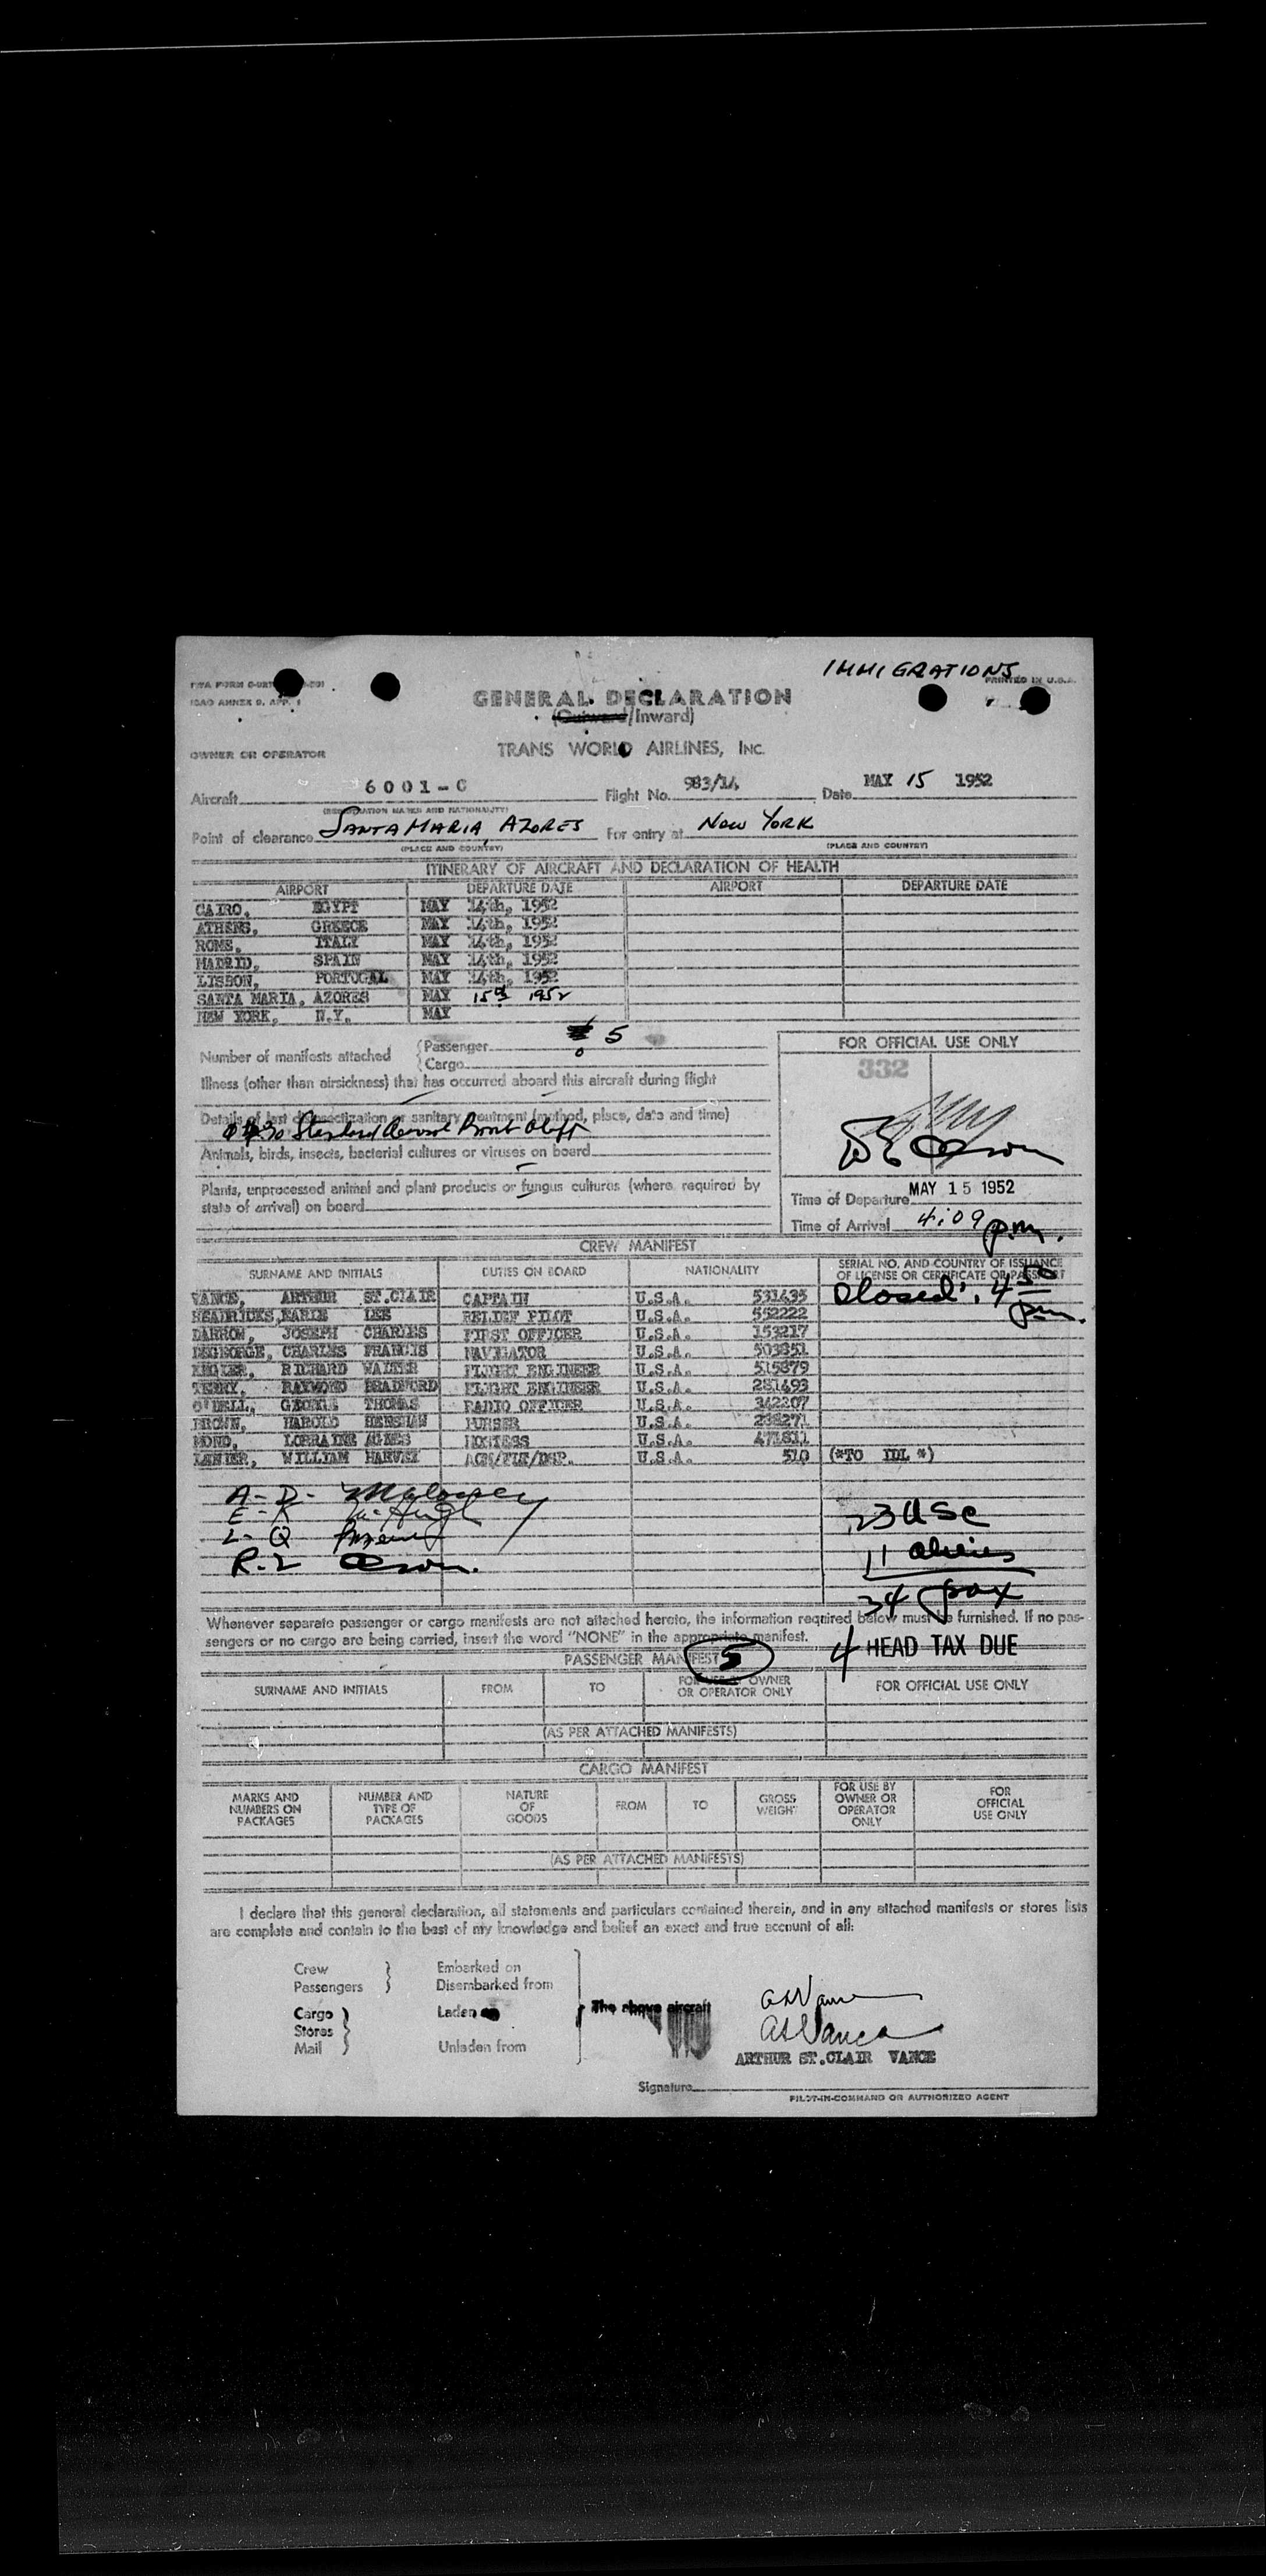 IMMIGRATIONS
PRINTED IN U.S.A.
ICAO ANNEX 9, APP. 1
GENERAL DECLARATION
(Outward/Inward)
OWNER OR OPERATOR TRANS WORLD AIRLINES, INC.
Aircraft 6001-C Flight No. 983/14 Date MAY 15 1952
(REGISTRATION MARKS AND NATIONALITY)
Point of clearance SANTA MARIA, AZORES For entry at NEW YORK
(PLACE AND COUNTRY) (PLACE AND COUNTRY)
ITINERARY OF AIRCRAFT AND DECLARATION OF HEALTH
AIRPORT DEPARTURE DATE AIRPORT DEPARTURE DATE
CAIRO, EGYPT MAY 14th, 1952
ATHENS, GREECE MAY 14th, 1952
ROME, ITALY MAY 14th, 1952
MADRID, SPAIN MAY 14th, 1952
LISBON, PORTUGAL MAY 14th, 1952
SANTA MARIA, AZORES MAY 15th 1952
NEW YORK, N.Y. MAY
Number of manifests attached Passenger 5
Cargo 0
FOR OFFICIAL USE ONLY
332
Illness (other than airsickness) that has occurred aboard this aircraft during flight
Details of last disinsectization or sanitary treatment (method, place, date and time)
Animals, birds, insects, bacterial cultures or viruses on board
Plants, unprocessed animal and plant products or fungus cultures (where required by
state of arrival) on board
Time of Departure MAY 15 1952
Time of Arrival 4:09 p.m.
CREW MANIFEST
SURNAME AND INITIALS DUTIES ON BOARD NATIONALITY SERIAL NO. AND COUNTRY OF ISSUANCE
OF LICENSE OR CERTIFICATE OR PASSPORT
Closed, 4 50 pm.
VANCE, ARTHUR ST.CLAIR CAPTAIN U.S.A. 531435
HEADRICKS, EARLE LEE RELIEF PILOT U.S.A. 552222
DARROW, JOSEPH CHARLES FIRST OFFICER U.S.A. 153217
DEGEORGE, CHARLES FRANCIS NAVIGATOR U.S.A. 503851
RICHARD WALTER FLIGHT ENGINEER U.S.A. 515879
TERRY, RAYMOND BRADFORD FLIGHT ENGINEER U.S.A. 281493
O'DELL, GEORGE THOMAS RADIO OFFICER U.S.A. 342207
BROWN, HAROLD HENSHAW PURSER U.S.A. 238271
MOND, LORRAINE AGNES HOSTESS U.S.A. 471811
LANIER, WILLIAM HARVEY U.S.A. 510 (*TO IDL *)
A-D- Maloney
E-K
L-Q
R-Z Olson.
23 USC
11 aliens
34 pax
Whenever separate passenger or cargo manifests are not attached hereto, the information required below must be furnished. If no pas-
sengers or no cargo are being carried, insert the word "NONE" in the appropriate manifest.
4 HEAD TAX DUE
PASSENGER MANIFEST 5
SURNAME AND INITIALS FROM TO FOR USE BY OWNER
OR OPERATOR ONLY FOR OFFICIAL USE ONLY
(AS PER ATTACHED MANIFESTS)
CARGO MANIFEST
MARKS AND
NUMBERS ON
PACKAGES NUMBER AND
TYPE OF
PACKAGES NATURE
OF
GOODS FROM TO GROSS
WEIGHT FOR USE BY
OWNER OR
OPERATOR
ONLY FOR
OFFICIAL
USE ONLY
(AS PER ATTACHED MANIFESTS)
I declare that this general declaration, all statements and particulars contained therein, and in any attached manifests or stores lists
are complete and contain to the best of my knowledge and belief an exact and true account of all:
Crew Embarked on
Passengers Disembarked from
Cargo Laden on The above aircraft
Stores
Mail Unladen from
ASVance
ASVance
ARTHUR ST.CLAIR VANCE
Signature
PILOT-IN-COMMAND OR AUTHORIZED AGENT